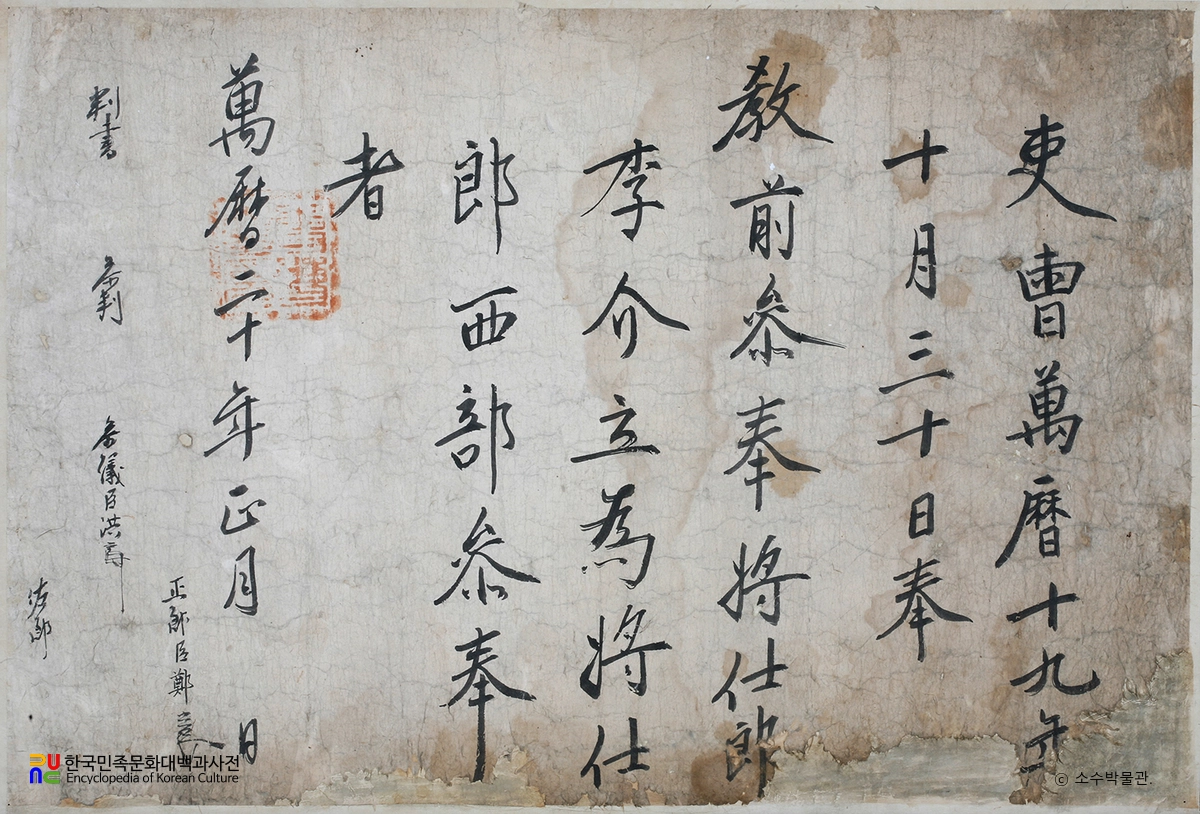 吏曹萬曆十九年
十月三十日奉
教前叅奉將仕郎
李介立爲將仕
郎西部叅奉
者
萬曆二十年正月 日
正郎臣鄭
判書 叅判 叅議臣洪
佐郎
한국민족문화대백과사전
Encyclopedia of Korean Culture
ⓒ 소수박물관.